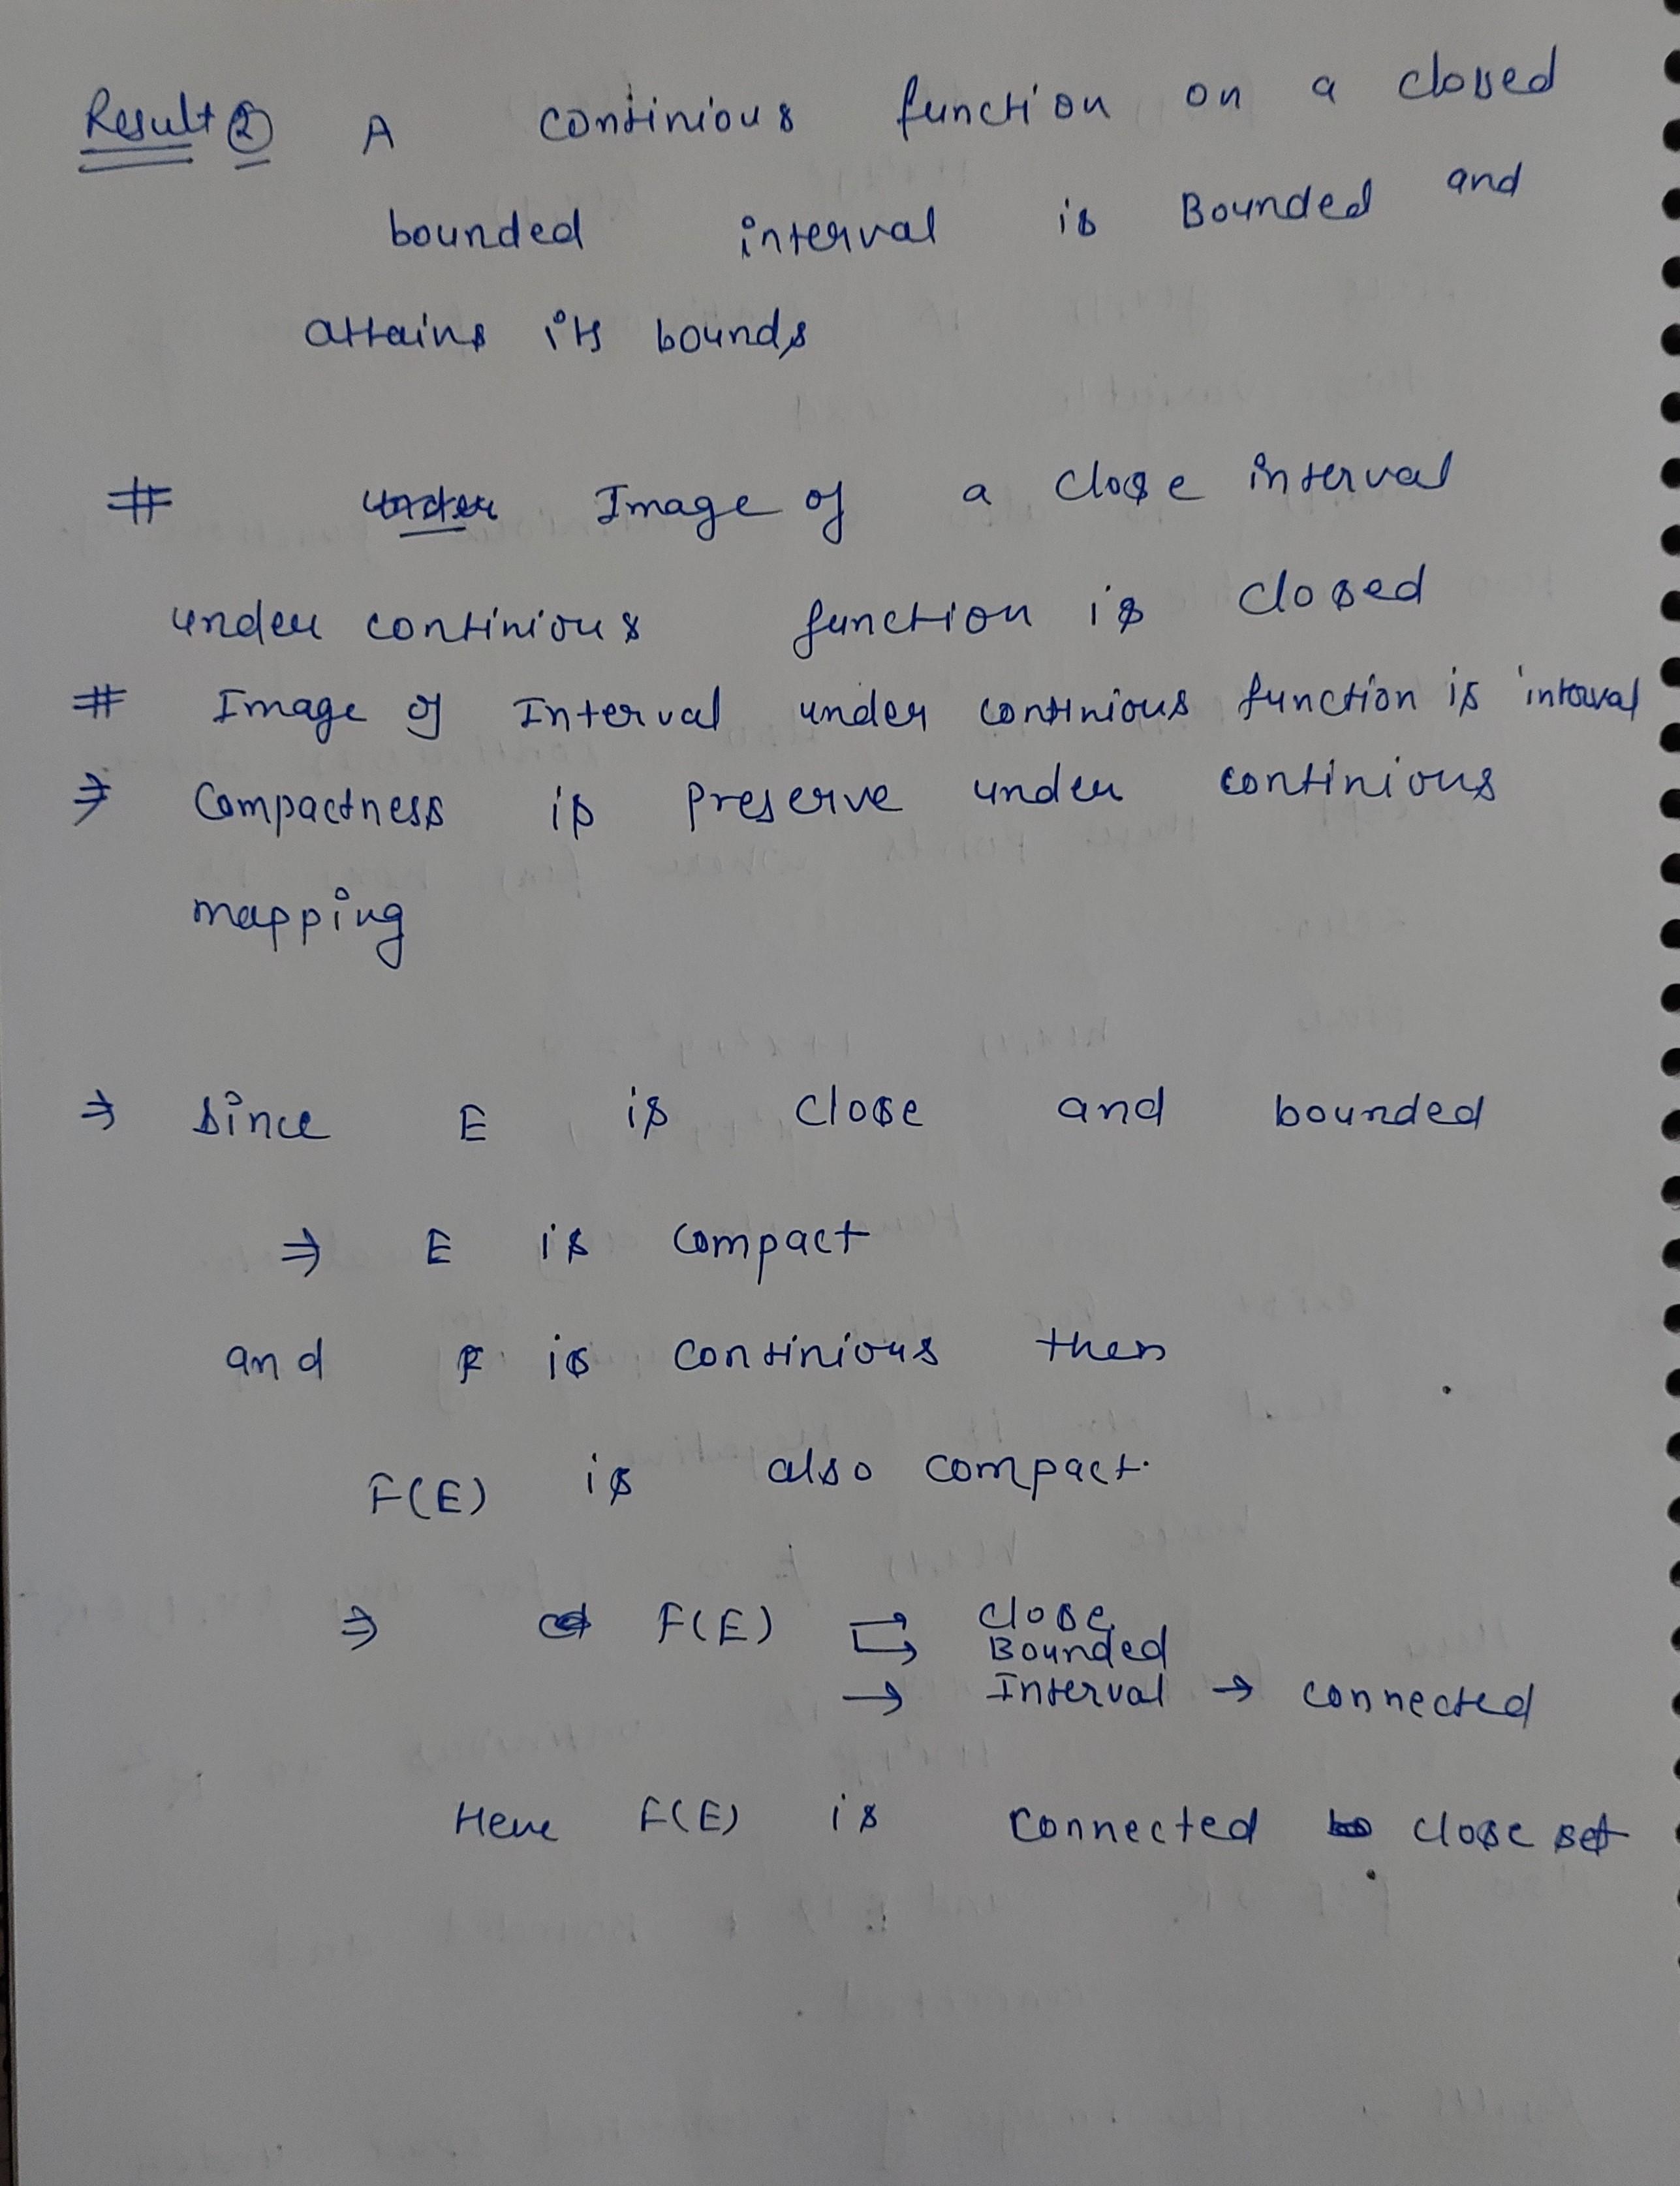 Result ② A continious function on a closed
bounded interval is Bounded and
attains its bounds
# Image of a close interval
under continious function is closed
# Image of Interval under continious function is interval
⇒ Compactness is preserve under continious
mapping
⇒ Since E is close and bounded
⇒ E is compact
and F is continious then
F(E) is also compact.
⇒ F(E) → close
→ Bounded
→ Interval → connected
Here F(E) is connected close set